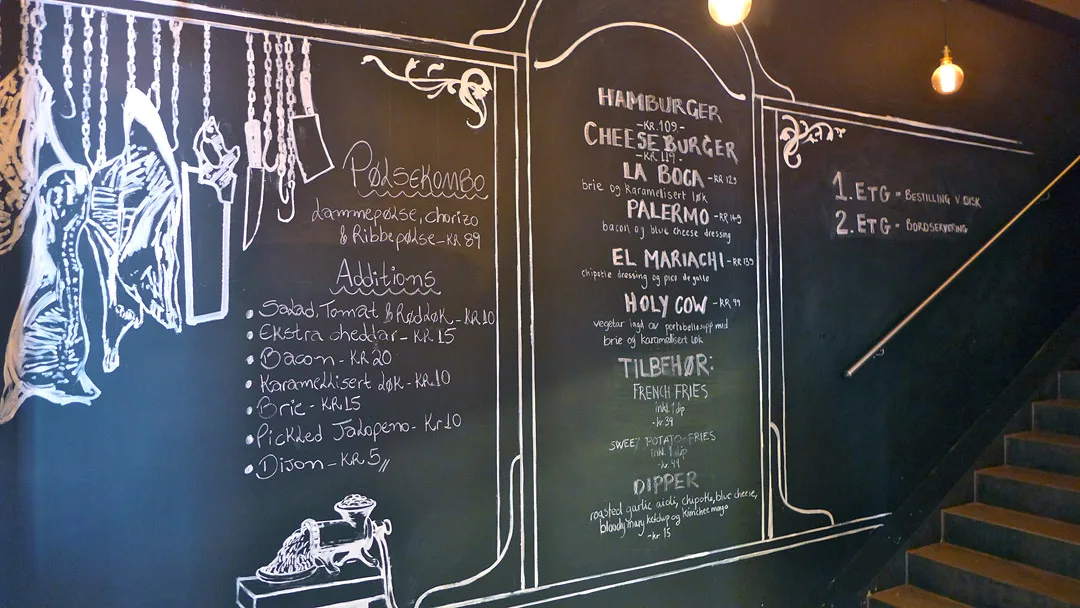 PØLSEKOMBO
Lammepølse, chorizo
& Ribbepølse - KR 89
Additions
Salad, Tomat & Rødløk - KR 10
Ekstra cheddar - KR 15
Bacon - KR 20
Karamellisert løk - KR.10
Brie - KR 15
Pickled Jalapeno - Kr 10
Dijon - KR 5,,
HAMBURGER
- KR. 109 -
CHEESEBURGER
- KR. 119 -
LA BOCA - KR 129
brie og karamellisert løk
PALERMO - KR 149
bacon og blue cheese dressing
EL MARIACHI - KR 139
chipotle dressing og pico de gallo
HOLY COW - KR 99
vegetar lagd av portobellosopp med
brie og karamellisert løk
TILBEHØR:
FRENCH FRIES
inkl. 1 dip
- kr 39
SWEET POTATO-FRIES
inkl. 1 dip
- kr. 49
DIPPER
roasted garlic aioli, chipotle, blue cheese,
bloody mary ketchup og kimchee mayo
- kr 15
1. ETG = BESTILLING V. DISK
2. ETG = BORDSERVERING